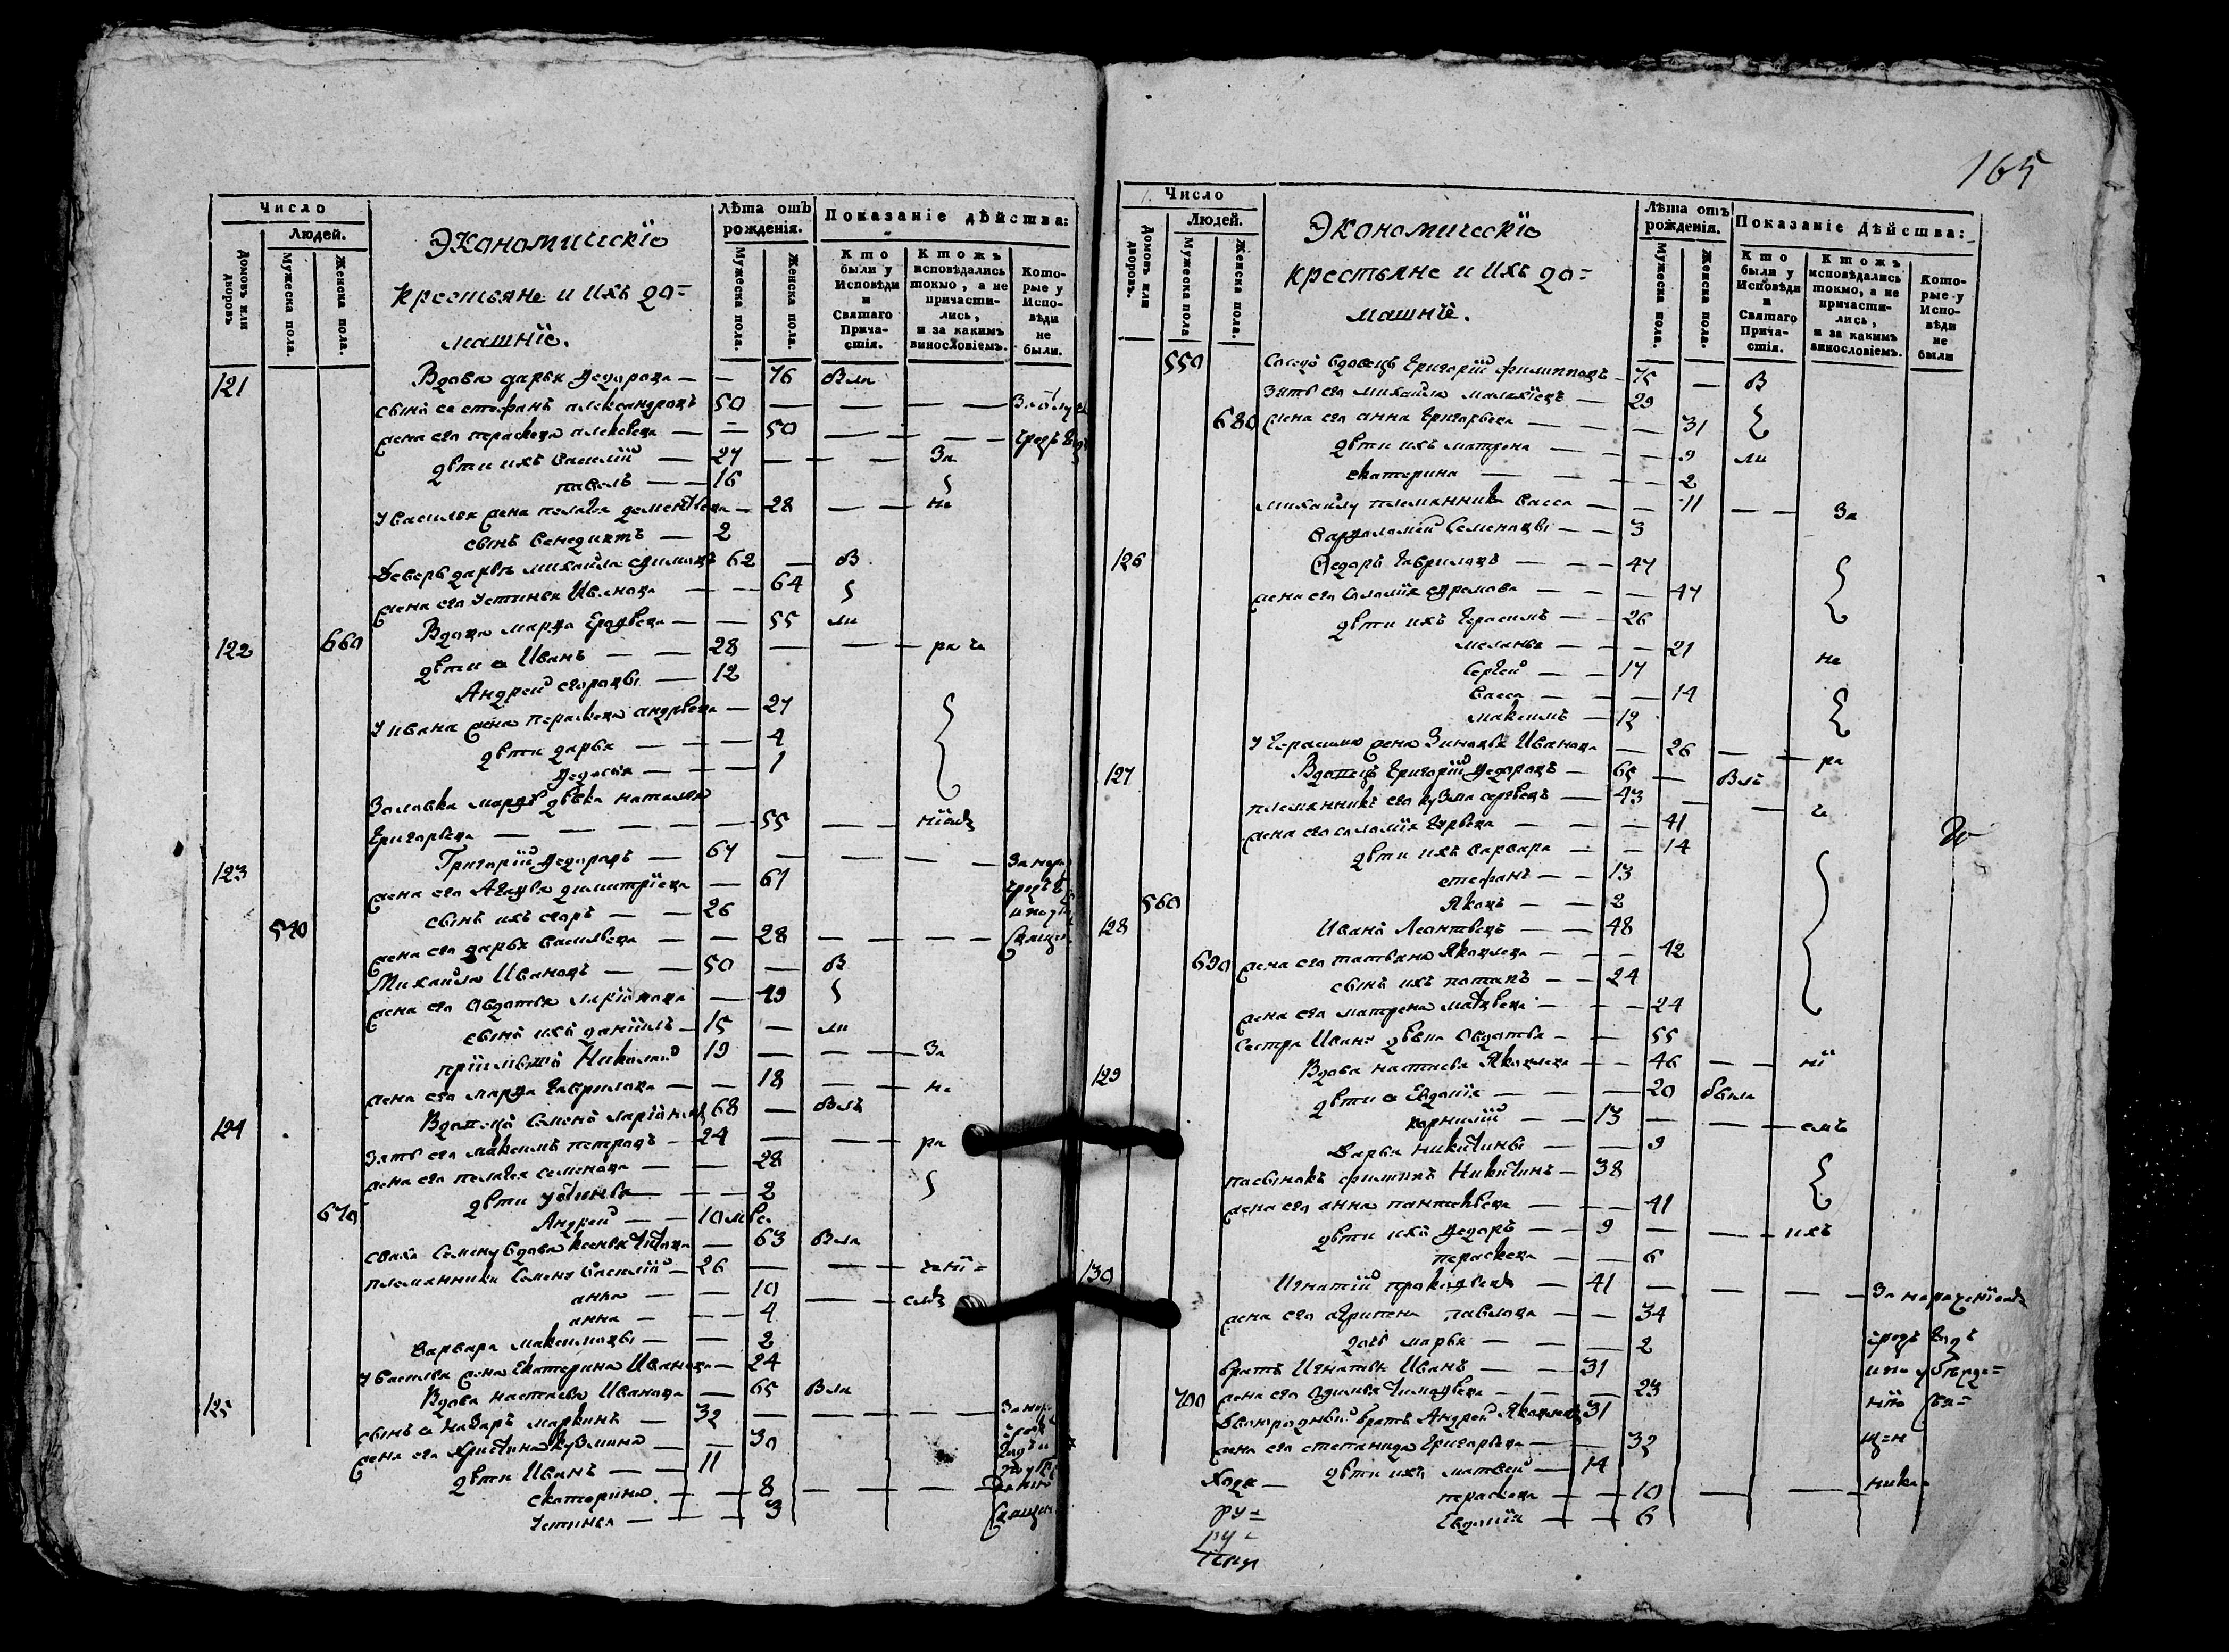 Число
Людей.
Домовъ или дворовъ
Мужеска пола.
Женска пола.
Экономическіе
крестьяне и ихъ до=
машніе.
Лѣта отъ рожденія.
Мужеска пола.
Женска пола.
Показаніе дѣйства:
Кто были у Исповѣди и Святаго Причастія.
Ктожъ исповѣдались токмо, а не причастились, и за какимъ винословіемъ.
Которые у Исповѣди не были.
121 Вдова дарья Федорова — — 76 был
сынъ ее стефанъ александровъ 50 — — — —
жена его параскева алексѣева — — 50 — — — —
дѣти ихъ василій — 27 — — — За
павелъ — — 16
У василья жена пелагея дементьева — 28 — — не
сынъ венедиктъ — 2
Деверь дарьѣ михайла 62 — в
жена его устинья Иванова — — 64
Вдова марфа — — 55 ли
122 660 дѣти ее Иванъ — — 28 — — — ра че
Андрей егоровы — 12
У ивана жена параскева андреева — 27
дѣти дарья — — — 4
Федосья — — — 1
Золовка марфѣ дѣвка наталья
Григорьева — — — — — 55 — — ніемъ
123 Григорій Федоровъ — 67 — — — —
жена его Агафья димитріева — 61
сынъ ихъ егоръ — — 26
540 жена его дарья васильева — — 28 — — — —
Михайла Ивановъ — — 50 — в
жена его Овдотья ларіонова — 49
сынъ ихъ даніилъ — 15 — ли
пріимышъ Николай 19 — — — За
жена его марфа Гаврилова — — 18 — — не
124 Вдовецъ Семенъ ларіоновъ 68 — былъ
Зять его максимъ петровъ — 24 — — — ра
жена его пелагея семенова — — 28
дѣти устинья — — — 2
670 Андрей — — 10 мѣс.
Семену вдова 63 была
племянники Семену Василій — 26 — — — чені=
анна — — 10 — — емъ
анна — — — 4
варвара максимовы — — 2
У василья жена Екатерина Иванова — 24
Вдова настасья Иванова — 65 была
125 сынъ ее назаръ маркинъ — 32 — — — —
жена его христина кузмина — — 30
дѣти Иванъ — — 11
екатерина — — 8 — — — —
Устинья — — — 3
165
Число
Людей.
Домовъ или дворовъ.
Мужеска пола
Женска пола.
Экономическіе
крестьяне и ихъ до=
машніе.
Лѣта отъ рожденія.
Мужеска пола.
Женска пола.
Показаніе дѣйства:
Кто были у Исповѣди и Святаго Причастія.
Ктожъ исповѣдались токмо, а не причастились, и за какимъ винословіемъ.
Которые у Исповѣди не были
550 Сосѣдъ вдовецъ Григорій филипповъ — 75 — в
Зять его михайла 29
680 жена его анна Григорьева — — — 31
дѣти ихъ матрена — — — 9 ли
екатерина — — — 2
михайлу племянники васса — — 11 — — За
варфоломей Семеновы — — 3
126 Федоръ Гавриловъ — — — 47
жена его саломія ефремова — — — 47
дѣти ихъ Герасимъ — — 26
меланья — — — 21
Сергей — — 17 не
васса — — — 14
максимъ — 12
У Герасима жена Зиновья Иванова — 26 — — ра
127 Вдовецъ Григорій Федоровъ — 65 — былъ
племянникъ его кузма сергѣевъ — 43 — — че
жена его саломія — — — 41
дѣти ихъ варвара — — 14
стефанъ — — 13
560 Яковъ — — 2
128 Иванъ Леонтьевъ — — 48
690 жена его татьяна Яковлева — — — 42
сынъ ихъ потапъ — — 24
жена его матрена матвѣева — — — 24
сестра Ивану дѣвка Овдотья — — 55
129 Вдова настасья Яковлева — — 46 — — ні
дѣти ее Евдокія — — — 20 была
корнилій — — 13 — — — емъ
Дарья никитины — — 9
пасынокъ филиппъ Никитинъ — 38
жена его анна — — — 41
дѣти ихъ Федоръ — — 9 — — — ихъ
параскева — — 6
130 Игнатій прокофьевъ — 41 — — — — За нераченіемъ
жена его агрипена павлова — — 34
дочь марья — — — 2
братъ Игнатью Иванъ — — 31
700 жена его 23
двоюродный братъ Андрей Яковлевъ 31
жена его степанида Григорьева — — 32
дѣти ихъ матвей — 14
параскева — — 10 — — — ника
Евдокія — — 6